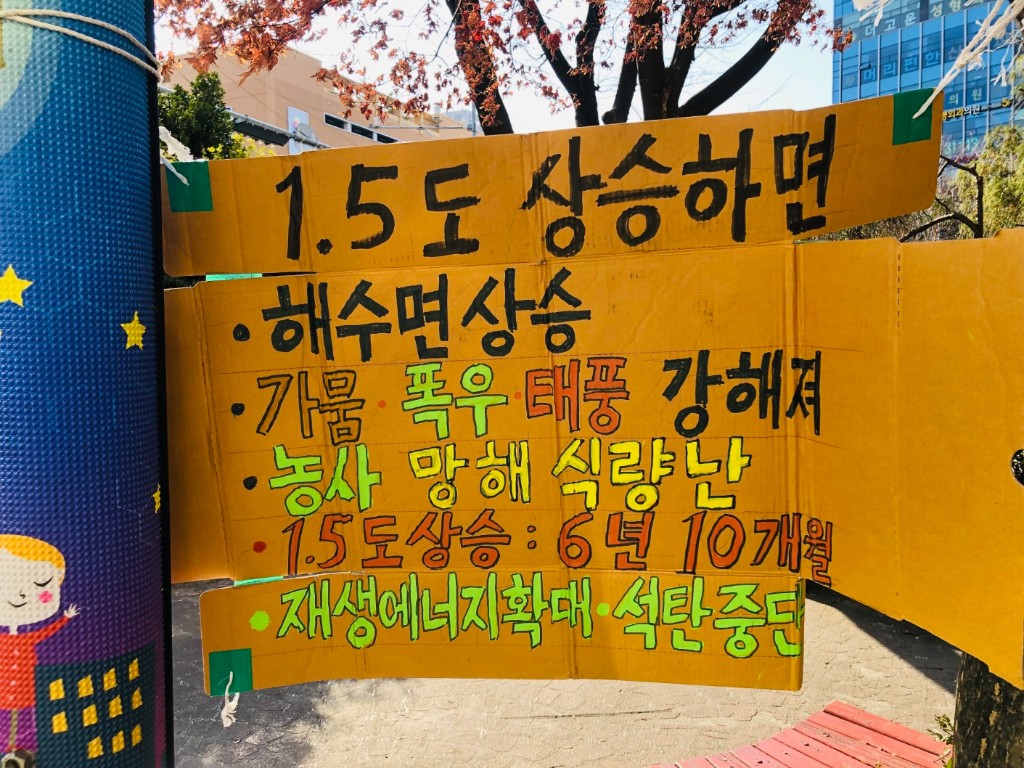 1.5도 상승하면
· 해수면상승
· 가뭄·폭우·태풍 강해져
· 농사 망해 식량난
· 1.5도상승: 6년 10개월
· 재생에너지확대·석탄중단